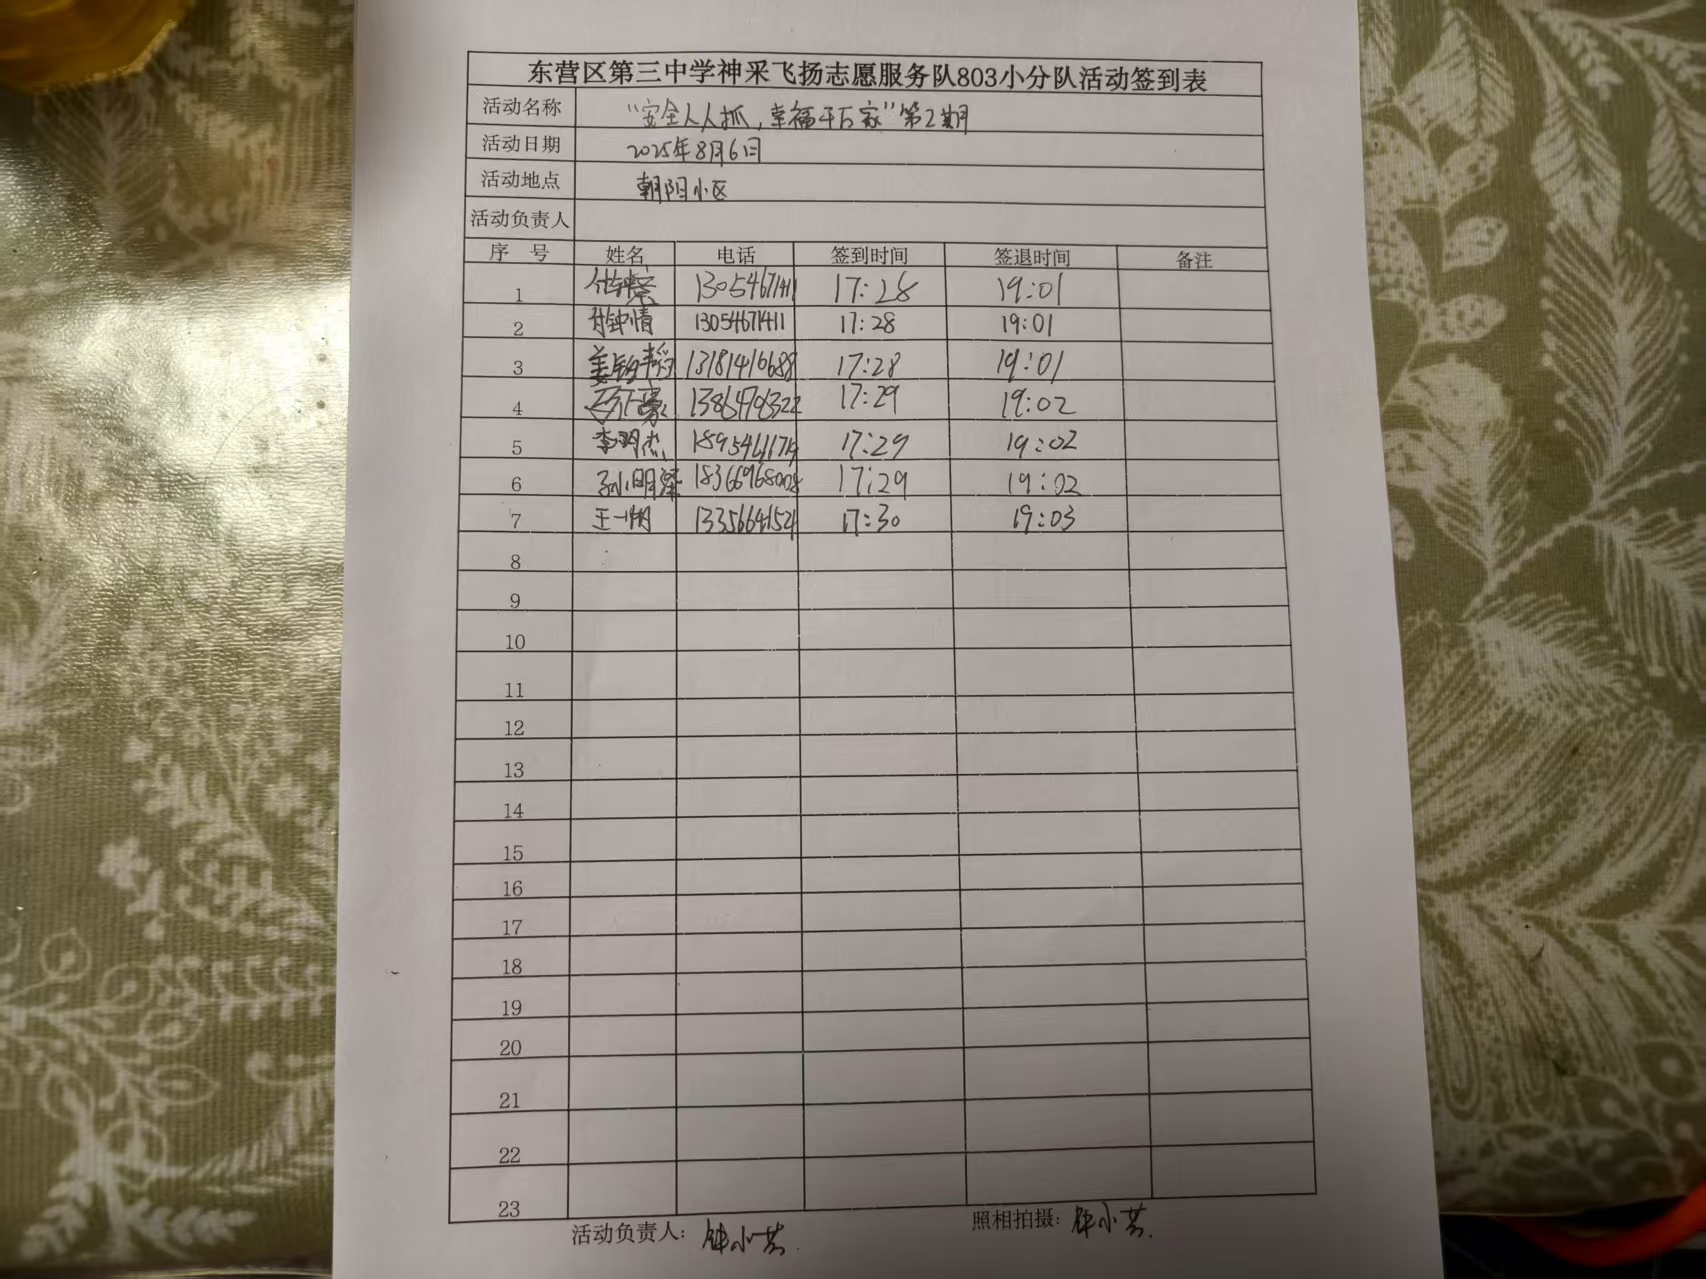 东营区第三中学神采飞扬志愿服务队803小分队活动签到表
活动名称 “安全人人抓，幸福千万家”第2期
活动日期 2025年8月6日
活动地点 朝阳小区
活动负责人
序 号 姓名 电话 签到时间 签退时间 备注
1 13054671411 17:28 19:01
2 付钟情 13054671411 17:28 19:01
3 姜韵韬 13181416688 17:28 19:01
4 13864706322 17:29 19:02
5 李明杰 17:29 19:02
6 孙小明泽 18366968008 17:29 19:02
7 王一帆 17:30 19:03
8
9
10
11
12
13
14
15
16
17
18
19
20
21
22
23
活动负责人： 钟小芸 照相拍摄： 钟小芸